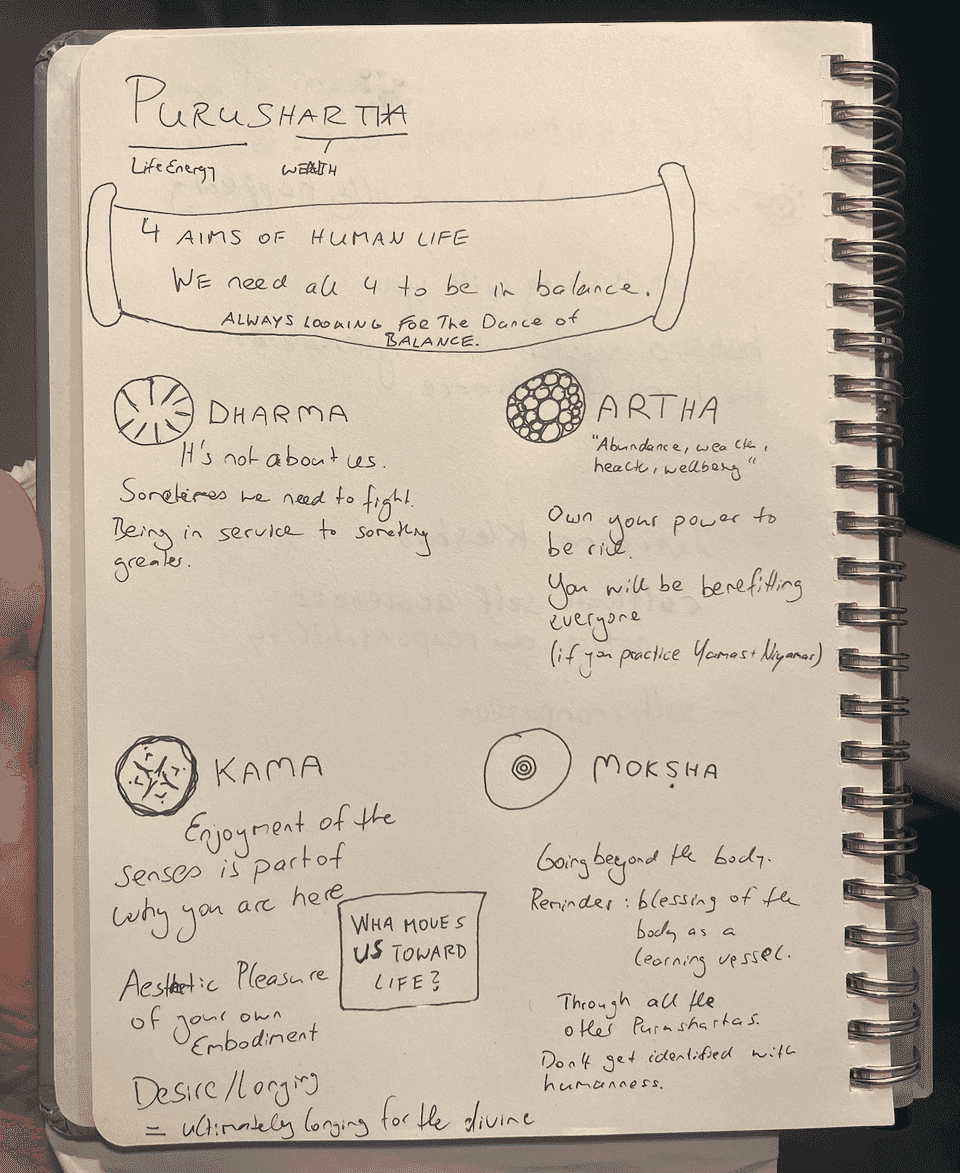 PURUSHARTHA
Life Energy WEALTH
4 AIMS OF HUMAN LIFE
WE need all 4 to be in balance.
ALWAYS LOOKING FOR The Dance of
BALANCE.
DHARMA
It's not about us.
Sometimes we need to fight.
Being in service to something
greater.
ARTHA
"Abundance, wealth,
health, wellbeing"
Own your power to
be rich.
You will be benefitting
everyone
(if you practice Yamas + Niyamas)
KAMA
Enjoyment of the
senses is part of
why you are here
WHA MOVES
US TOWARD
LIFE?
Aesthetic Pleasure
of your own
Embodiment
Desire/Longing
= ultimately longing for the divine
MOKṢHA
Going beyond the body.
Reminder: blessing of the
body as a
learning vessel.
Through all the
other Purushartas.
Don't get identified with
humanness.